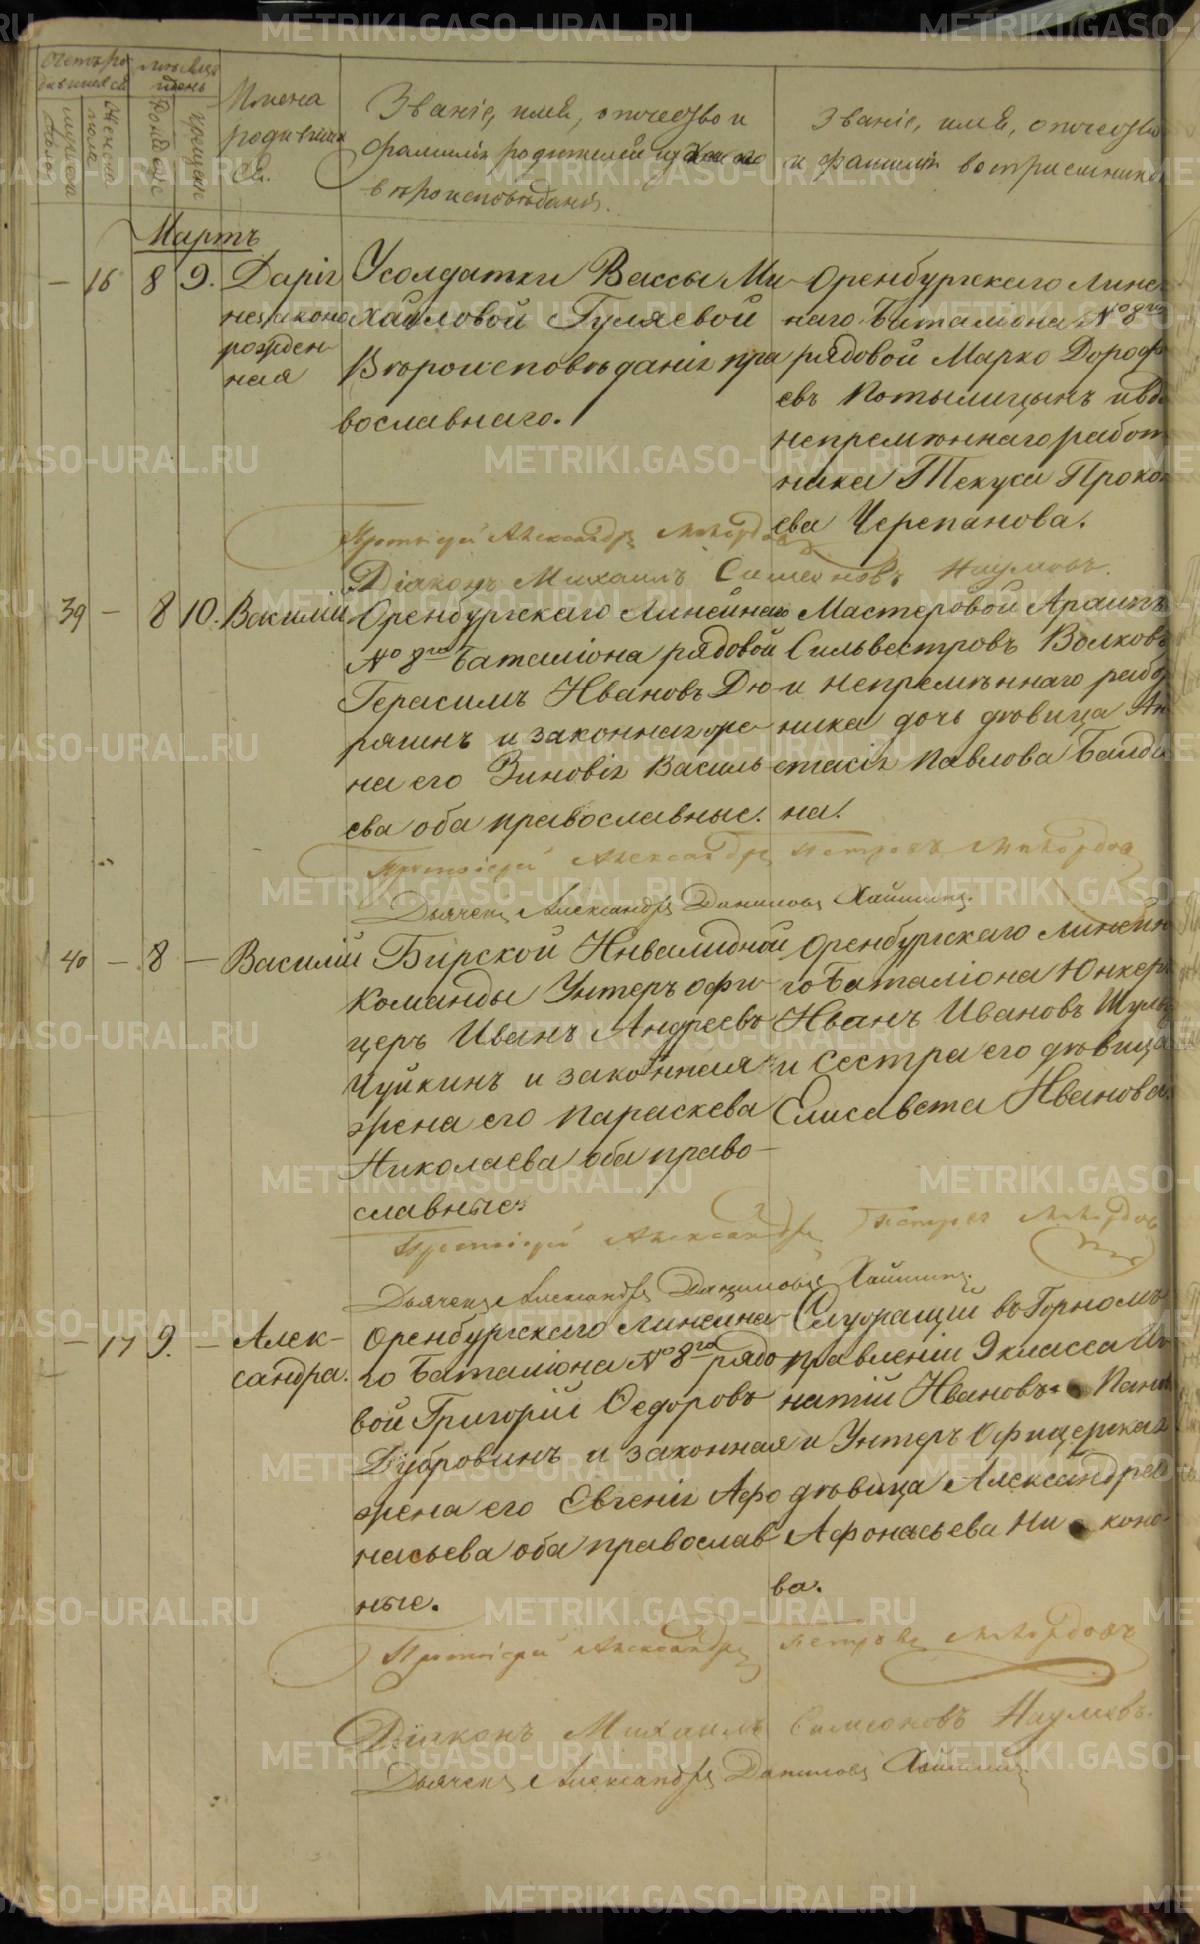 Счетъ ро-
дившихся
мѣсяцъ
день
мужеска
пола
женска
пола
рожденія
крещенія
Имена
родивших
ся.
Званіе, имя, отчество и
фамилія родителей и какого
вѣроисповѣданія.
Званіе, имя, отчество
и фамилія воспріемников
Мартъ
— 16 8 9. Дарія
незаконо
рожден-
ная
У солдатки Вассы Ми-
хайловой Гуляевой
Вѣроисповѣданія пра
вославнаго.
Оренбургскаго Линей
наго Баталіона № 8го
рядовой Марко Дорофе
евъ Потылицынъ и вд
непремѣннаго работ
ника Текуса Проко
ева Черепанова.
Протоіерей Александръ
Діаконъ Михаилъ Симеоновъ Наумовъ.
39 — 8 10. Василій
Оренбургскаго Линейнаго
№ 8го Баталіона рядовой
Герасимъ Ивановъ Дю-
рягинъ и законная же
на его Зиновія Василь
ева оба православные.
Мастеровой Араипъ
Сильвестровъ Волковъ
и непремѣннаго рабо
ника дочь дѣвица Ан
стасія Павлова Балди
на.
Протоіерей Александръ Петровъ
Дьячекъ Александръ Даниловъ
40 — 8 — Василій
Бирской Инвалидной
Команды Унтеръ офи
церъ Иванъ Андреевъ
Чуйкинъ и законная
жена его Параскева
Николаева оба право-
славные.
Оренбургскаго Линейн
го Баталіона Юнкеръ
Иванъ Ивановъ Шульц
и Сестра его дѣвица
Елисавета Иванова.
Протоіерей Александръ Петровъ
Дьячекъ Александръ Даниловъ
— 17 9. — Алек-
сандра.
Оренбургскаго Линейна-
го Баталіона № 8го рядо
вой Григорій Ѳедоровъ
Дубровинъ и законная
жена его Евгенія Афо
насьева оба православ
ные.
Служащій въ Горномъ
правленіи 9 класса Иг
натій Ивановъ Пано
и Унтеръ Офицерская
дѣвица Александра
Афонасьева Ни коно-
ва.
Протоіерей Александръ Петровъ
Діаконъ Михаилъ Симеоновъ Наумовъ.
Дьячекъ Александръ Даниловъ
METRIKI.GASO-URAL.RU